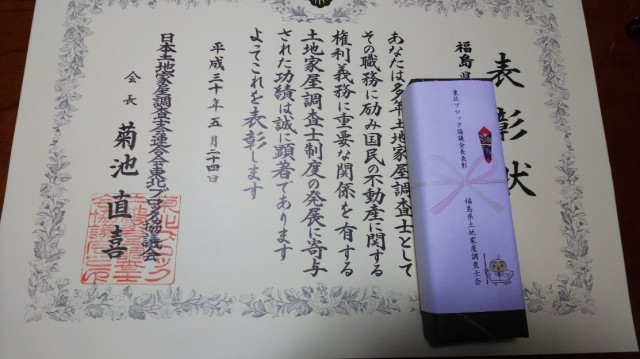 表彰状
福島県
あなたは多年土地家屋調査士として
その職務に励み国民の不動産に関する
権利義務に重要な関係を有する
土地家屋調査士制度の発展に寄与
された功績は誠に顕著であります
よってこれを表彰します
平成三十年五月二十四日
日本土地家屋調査士会連合会東北ブロック協議会
会長 菊池直喜
東北ブロック協議会長表彰
福島県土地家屋調査士会